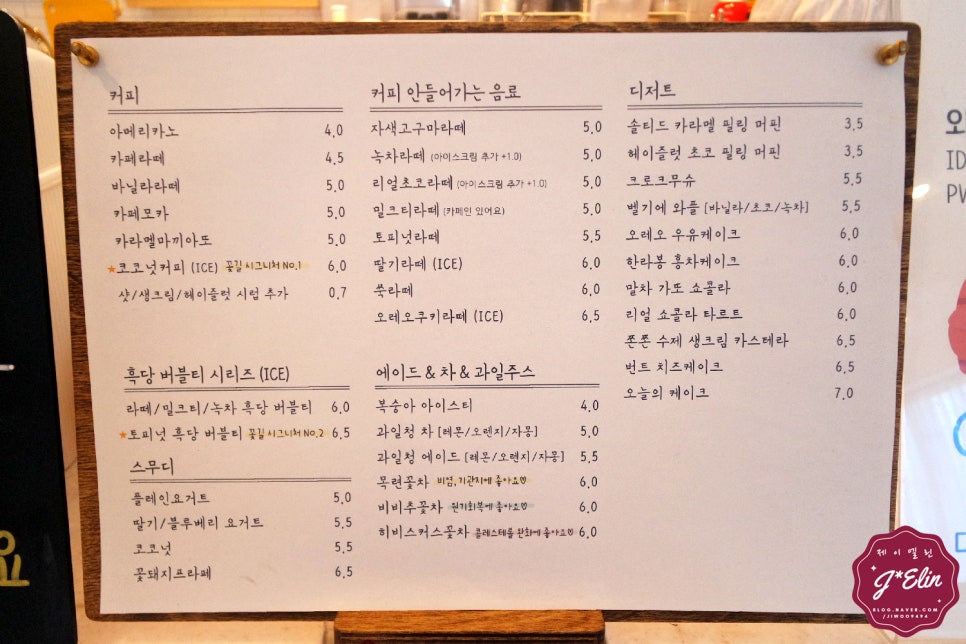 커피
아메리카노 4.0
카페라떼 4.5
바닐라라떼 5.0
카페모카 5.0
카라멜마끼아또 5.0
★코코넛커피 (ICE) 꽃길 시그니처 No.1 6.0
샷/생크림/헤이즐럿 시럽 추가 0.7
흑당 버블티 시리즈 (ICE)
라떼/밀크티/녹차 흑당 버블티 6.0
★토피넛 흑당 버블티 꽃길 시그니처 No.2 6.5
스무디
플레인요거트 5.0
딸기/블루베리 요거트 5.5
코코넛 5.5
꽃돼지프라페 6.5
커피 안들어가는 음료
자색고구마라떼 5.0
녹차라떼 (아이스크림 추가 +1.0) 5.0
리얼초코라떼 (아이스크림 추가 +1.0) 5.0
밀크티라떼 (카페인 있어요) 5.0
토피넛라떼 5.5
딸기라떼 (ICE) 6.0
쑥라떼 6.0
오레오쿠키라떼 (ICE) 6.5
에이드 & 차 & 과일주스
복숭아 아이스티 4.0
과일청 차 [레몬/오렌지/자몽] 5.0
과일청 에이드 [레몬/오렌지/자몽] 5.5
목련꽃차 비염, 기관지에 좋아요♡ 6.0
비비추꽃차 원기회복에 좋아요♡ 6.0
히비스커스꽃차 콜레스테롤 완화에 좋아요♡ 6.0
디저트
솔티드 카라멜 필링 머핀 3.5
헤이즐럿 초코 필링 머핀 3.5
크로크무슈 5.5
벨기에 와플 [바닐라/초코/녹차] 5.5
오레오 우유케이크 6.0
한라봉 홍차케이크 6.0
말차 가또 쇼콜라 6.0
리얼 쇼콜라 타르트 6.0
쫀쫀 수제 생크림 카스테라 6.5
번트 치즈케이크 6.5
오늘의 케이크 7.0
ID
요
제이엘린
J*Elin
BLOG.NAVER.COM
/JIWOO9494